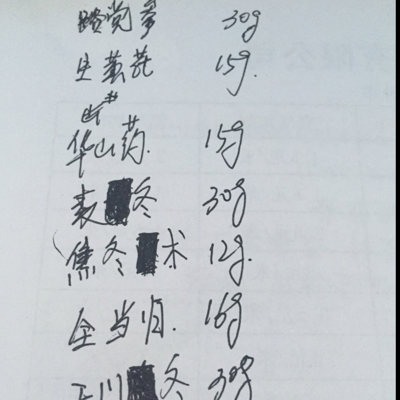 潞党参 30g
生黄芪 15g.
华山药. 15g
表冬 30g
焦冬术 12g.
全当归. 16g
川冬 30g